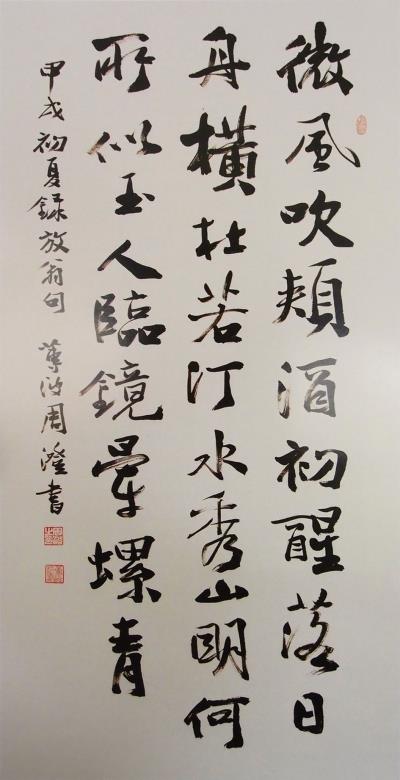 微風吹頰酒初醒落日
舟橫杜若汀水秀山明何
所似玉人臨鏡暈螺青
甲戌初夏錄放翁句 蓴波周澄書